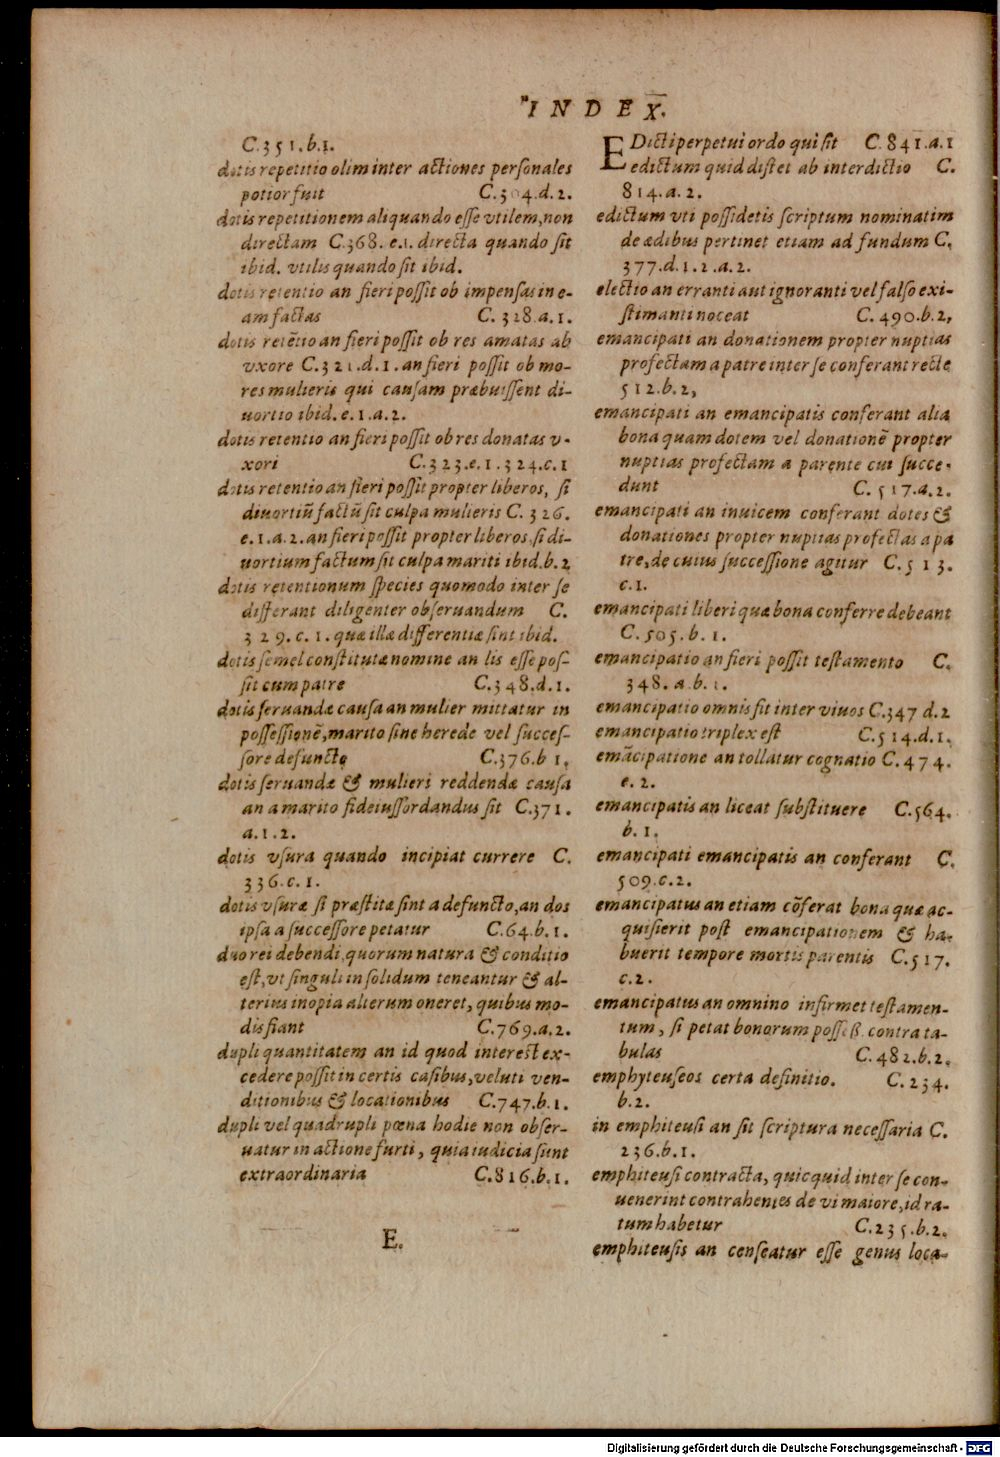 INDEX.
C.351.b.1.
dotis repetitio olim inter actiones perſonales
potior fuit C.304.d.2.
dotis repetitionem aliquando eſſe vtilem,non
directam C.368.e.1. directa quando ſit
ibid. vtilis quando ſit ibid.
dotis retentio an fieri poſſit ob impenſas in e-
am factas C. 328.a.1.
dotis retētio an fieri poſſit ob res amatas ab
vxore C.321.d.1.an fieri poſſit ob mo-
res mulieris qui cauſam præbuiſſent di-
uortio ibid.e.1.a.2.
dotis retentio an fieri poſſit ob res donatas v-
xori C.323.e.1.324.c.1
dotis retentio an fieri poſſit propter liberos, ſi
diuortiū factū ſit culpa mulieris C. 326.
e.1.a.2.an fieri poſſit propter liberos,ſi di-
uortium factum ſit culpa mariti ibid.b.2
dotis retentionum ſpecies quomodo inter ſe
differant diligenter obſeruandum C.
329.c.1.quæ illæ differentiæ ſint ibid.
dotis ſemel conſtitutæ nomine an lis eſſe poſ-
ſit cum patre C.348.d.1.
dotis ſeruandæ cauſa an mulier mittatur in
poſſeſſionē,marito ſine herede vel ſucceſ-
ſore defuncto C.376.b 1.
dotis ſeruandæ & mulieri reddendæ cauſa
an a marito fideiuſſor dandus ſit C.371.
a.1.2.
dotis vſura quando incipiat currere C.
336.c.1.
dotis vſuræ ſi præſtitæ ſint a defuncto,an dos
ipſa a ſucceſſore petatur C.64.b.1.
duo rei debendi,quorum natura & conditio
eſt,vt ſinguli in ſolidum teneantur & al-
terius inopia alterum oneret,quibus mo-
dis fiant C.769.a.2.
dupli quantitatem an id quod intereſt ex-
cedere poſſit in certis caſibus,veluti ven-
ditionibus & locationibus C.747.b.1.
dupli vel quadrupli pœna hodie non obſer-
uatur in actione furti, quia iudicia ſunt
extraordinaria C.816.b.1.
E.
EDicti perpetui ordo qui ſit C.841.a.1
edictum quid diſtet ab interdictio C.
814.a.2.
edictum vti poſſidetis ſcriptum nominatim
de ædibus pertinet etiam ad fundum C.
377.d.1.2.a.2.
electio an erranti aut ignoranti vel falſo exi-
ſtimanti noceat C.490.b.2,
emancipati an donationem propter nuptias
profectam a patre inter ſe conferant recte
512.b.2,
emancipati an emancipatis conferant alia
bona quam dotem vel donationē propter
nuptias profectam a parente cui ſucce-
dunt C.517.a.2.
emancipati an inuicem conferant dotes &
donationes propter nuptias profectas a pa
tre,de cuius ſucceſſione agitur C.513.
c.1.
emancipati liberi quæ bona conferre debeant
C.505.b.1.
emancipatio an fieri poſſit teſtamento C.
348.a.b.1.
emancipatio omnis fit inter viuos C.347 d.2
emancipatio triplex eſt C.514.d.1.
emācipatione an tollatur cognatio C.474.
e.2.
emancipatis an liceat ſubſtituere C.564.
b.1.
emancipati emancipatis an conferant C.
509.c.2.
emancipatus an etiam cōferat bona quæ ac-
quiſierit poſt emancipationem & ha-
buerit tempore mortis parentis C.517.
c.2.
emancipatus an omnino infirmet teſtamen-
tum, ſi petat bonorum poſſeß. contra ta-
bulas C.482.b.2.
emphyteuſeos certa definitio. C.234.
b.2.
in emphiteuſi an ſit ſcriptura neceſſaria C.
236.b.1.
emphiteuſi contracta, quicquid inter ſe con-
uenerint contrahentes de vi maiore,id ra-
tum habetur C.235.b.2.
emphiteuſis an cenſeatur eſſe genus loca-
Digitalisierung gefördert durch die Deutsche Forschungsgemeinschaft - DFG